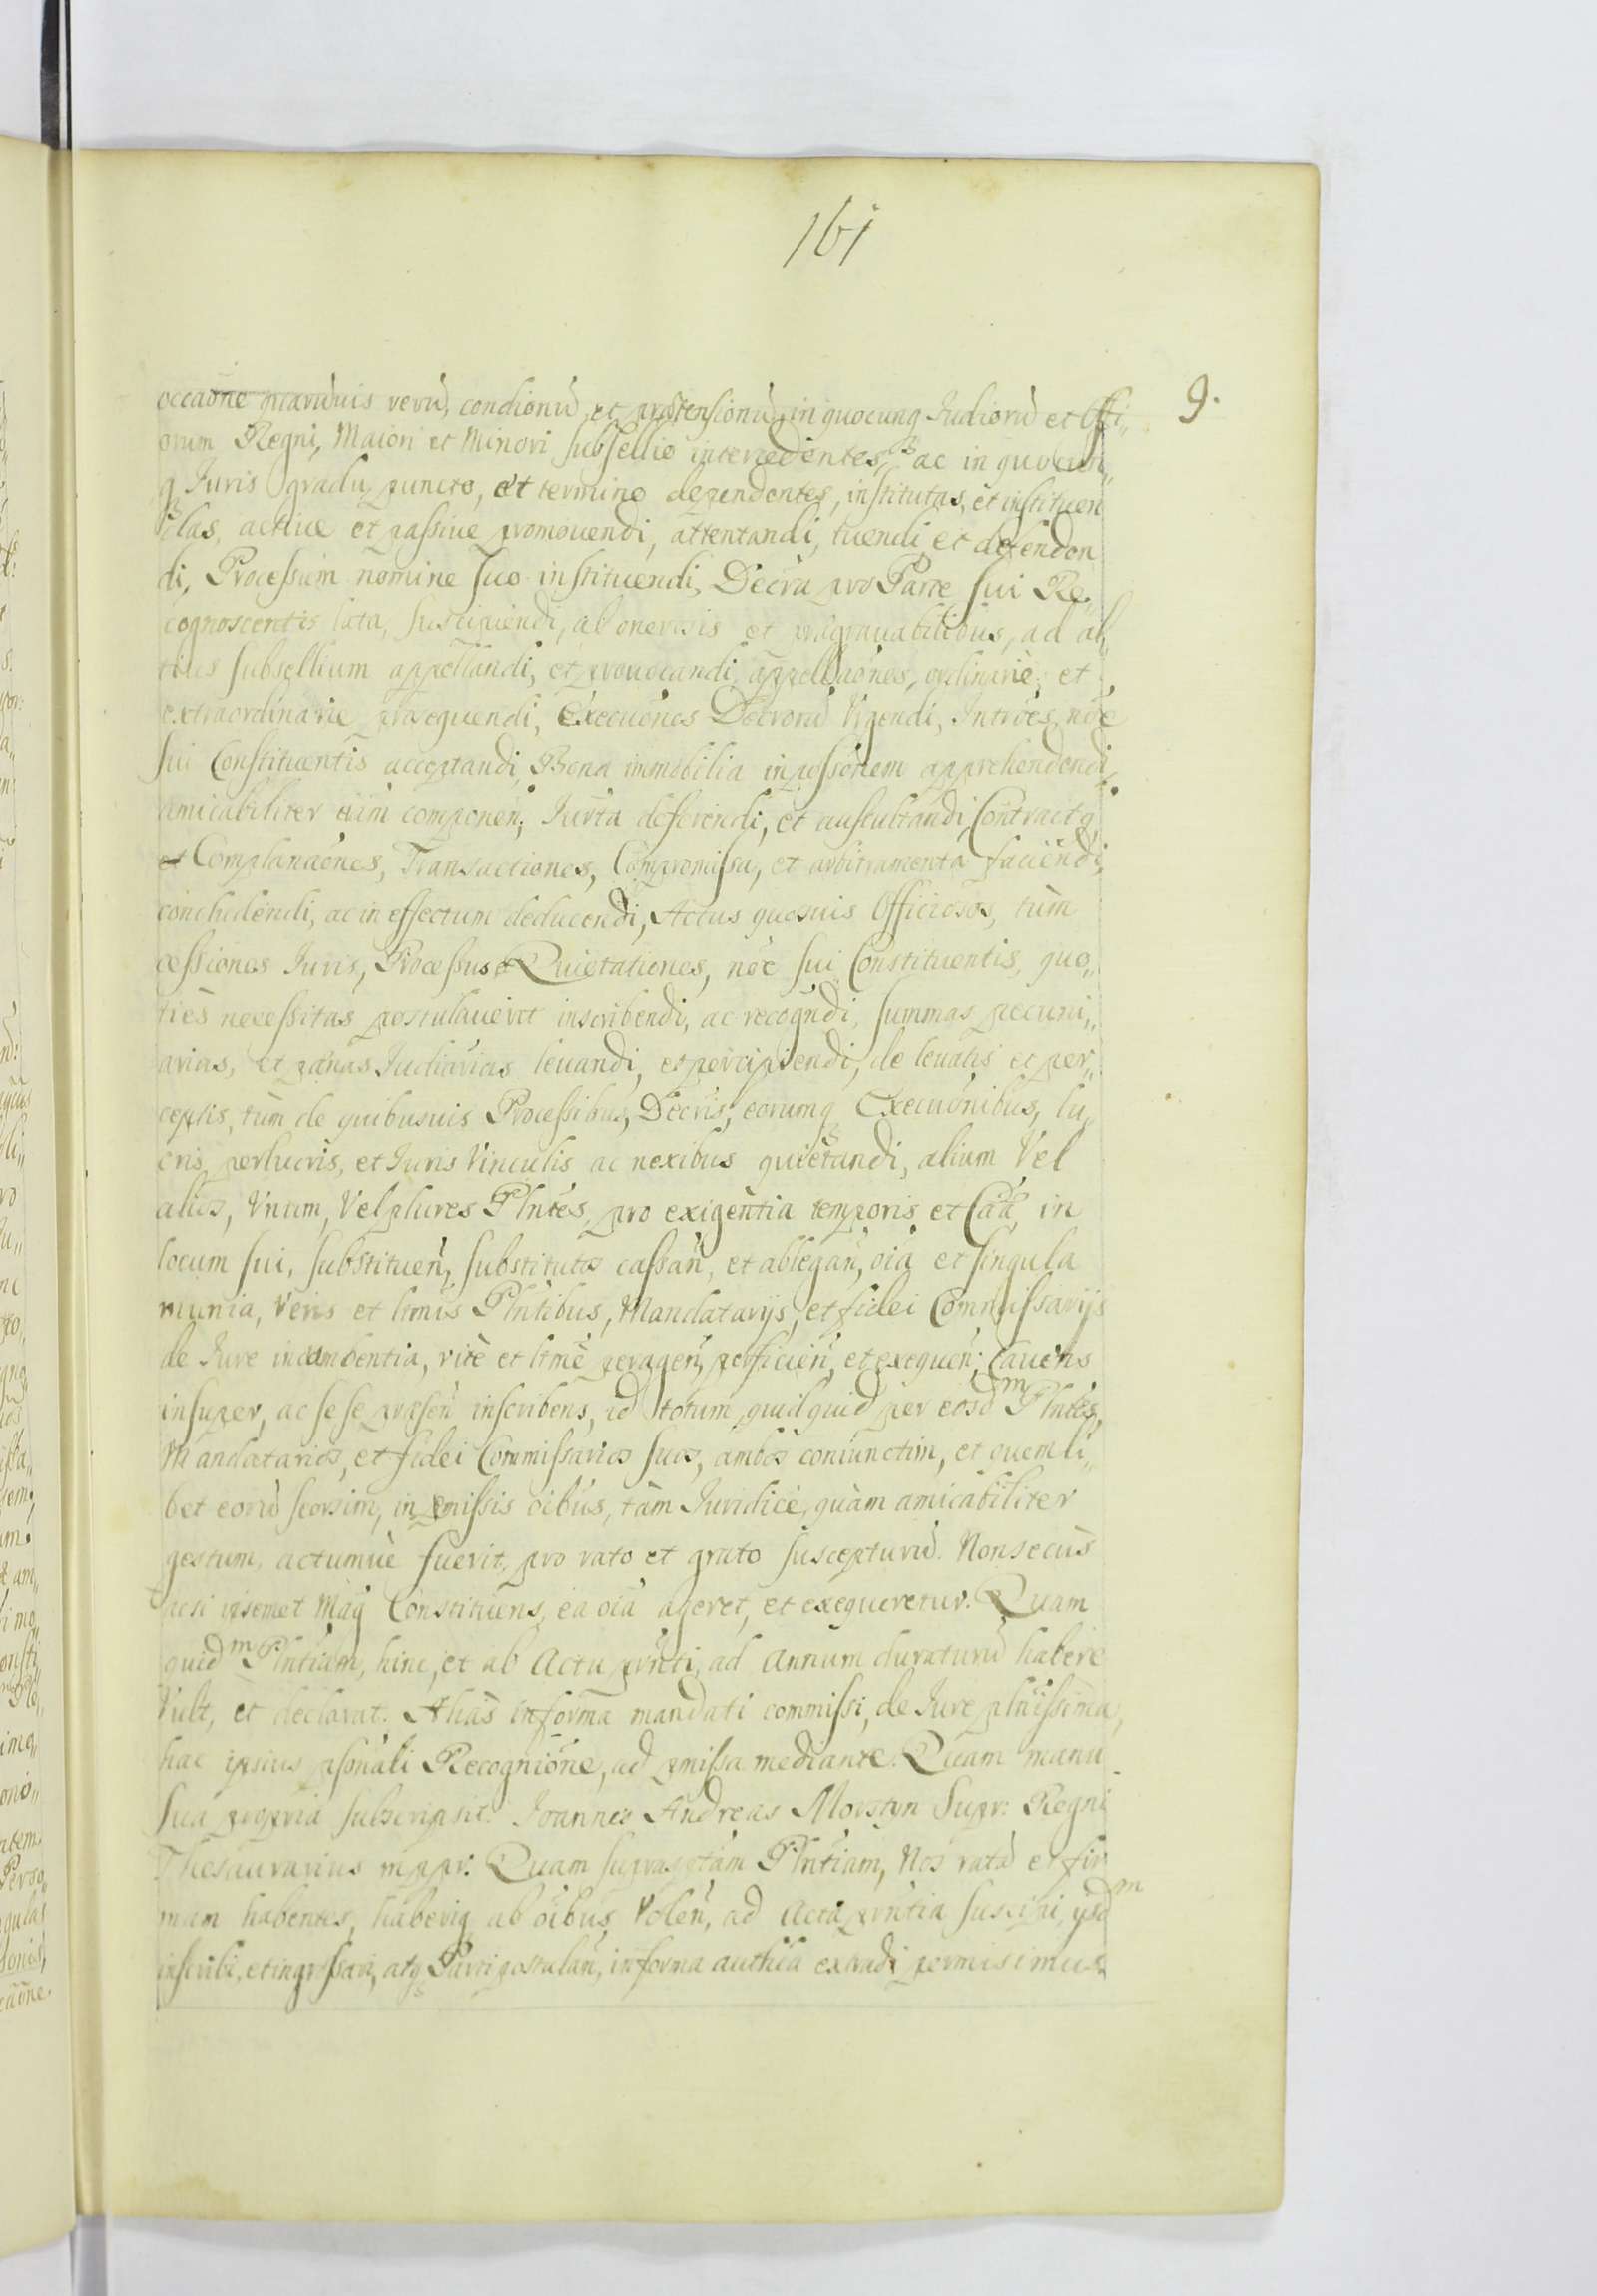 161
9.
occaõne quarũuis rerũ, condionũ, et prætensionũ, in quocunq Judiorũ et Offi„
orum Regni, Maiori et Minori subsellio intercedentes, ac in quocun„
q Iuris gradu, puncto, et termino dependentes, institutas, et instituen
das, actiue et passiue promouendi, attentandi, tuendi et defenden
di, Processum nomine suo instituendi, Decra pro Parte sui Re„
cognoscentis lata, suscipiendi, ab onerosis et prægrauabilibus, ad al„
tius subsellium appellandi, et prouocandi, appellaõnes, ordinariè, et
extraordinariè prosequendi, Execuõnes Decrorũ Vrgendi, Intrões nõe
sui Constituentis acceptandi, Bona immobilia in possõnem apprehendendi,
amicabiliter tùm componeñ, Iurta deferendi, et auscultandi, Contractq
et Complanaõnes, Transactiones, Compromissa, et arbitramenta faciendi,
concludendi, ac in effectum deducendi, Actus quosuis Officiosos, tùm
cessiones Iuris, Processus et Quietationes, nõe sui Constituentis, quo„
tiès necessitas postulauerit inscribendi, ac recogñdi, summas pecuni„
arias, et pænas Judiarias leuandi, et percipiendi, de leuatis et per„
ceptis, tùm de quibusuis Processibus, Decris, eorumq Execuõnibus, lu„
cris, perlucris, et Iuris Vinculis ac nexibus quietandi, alium Vel
alios, Vnum, Vel plures Plntes, pro exigentia temporis et Caũ, in
locum sui, substitueñ, substitutos cassañ, et ablegañ, oĩa et singula
munia, Veris et ltmis Plntibus, Mandatarijs, et fidei Commissarijs
de Iure incumbentia, ritè et ltmè perageñ, perficieñ, et exequeñ; Cauens
insuper, ac sese præseñ inscribens, id totum, quidquid per eosdm Plntes,
Mandatarios, et fidei Commissarios suos, ambos coniunctim, et quemli„
bet eorũ seorsim, in pmissis oĩbus, tàm Iuridicè, quàm amicabiliter
gestum, actumuè fuerit, pro rato et grato suscepturũ. Non secùs
acsi ipsemet Mag Constituens, ea oĩa ageret, et exequeretur. Quam
quidm Plntiam, hinc, et ab Actu prnti, ad Annum duraturũ habere
Vult, et declarat. Aliàs in forma mandati commissi, de Iure plnissima,
hac ipsius psonali Recogniõne, ad pmissa mediante. Quam manu
sua propria subscripsit. Joannes Andreas Morstyn Supr: Regni
Thesaurarius mppr: Quam suprascptam Plntiam, Nos ratã et fir
mam habentes, haberiq ab oĩbus Voleñ, ad Acta prntia suscipi, ijsdm
inscribi, et ingrossari, atq Parti postulañ, in forma authẽa extradi permisimus.